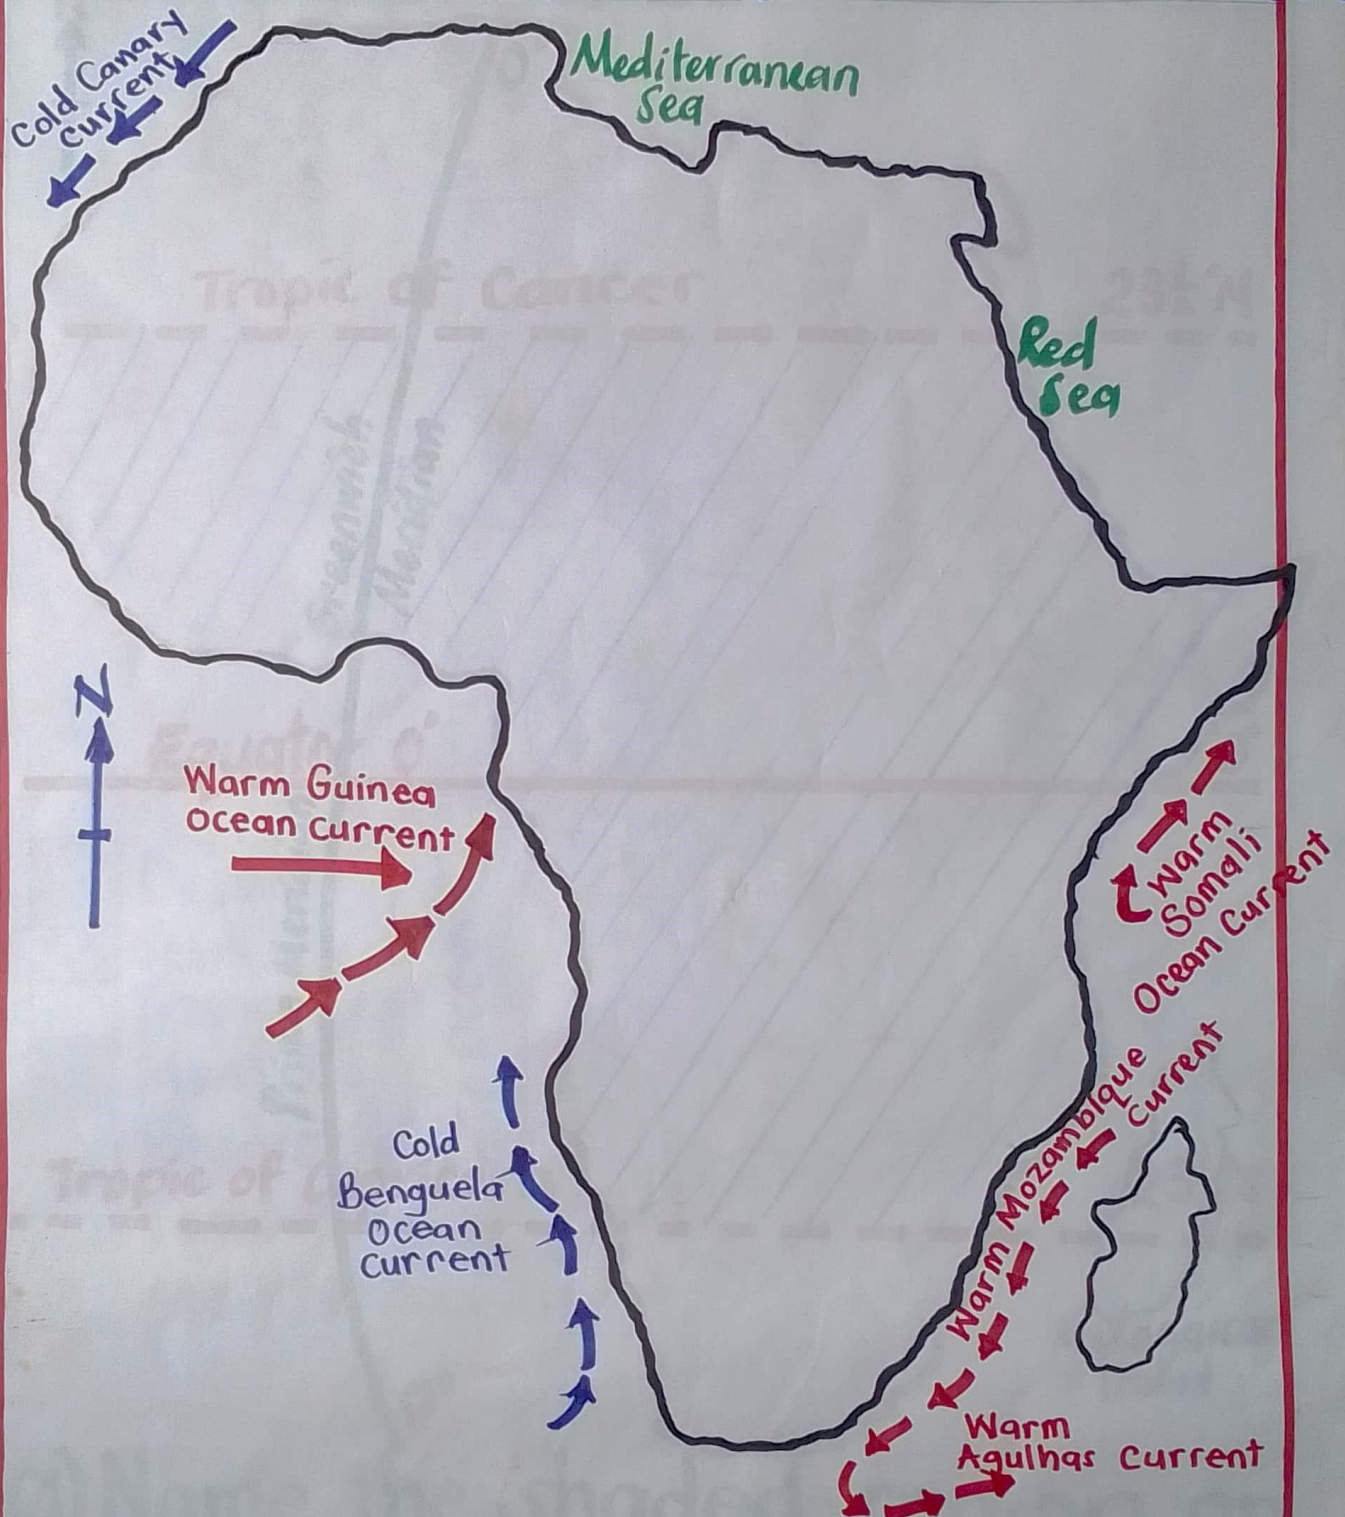 Cold Canary
Current
Mediterranean
Sea
Tropic of Cancer
23½°N
Red
Sea
Greenwich
Meridian
N
Equator 0°
Warm Guinea
Ocean Current
Warm
Somali
Ocean Current
Warm Mozambique
Current
Cold
Benguela
Ocean
Current
Tropic of
Warm
Agulhas Current
the shaded